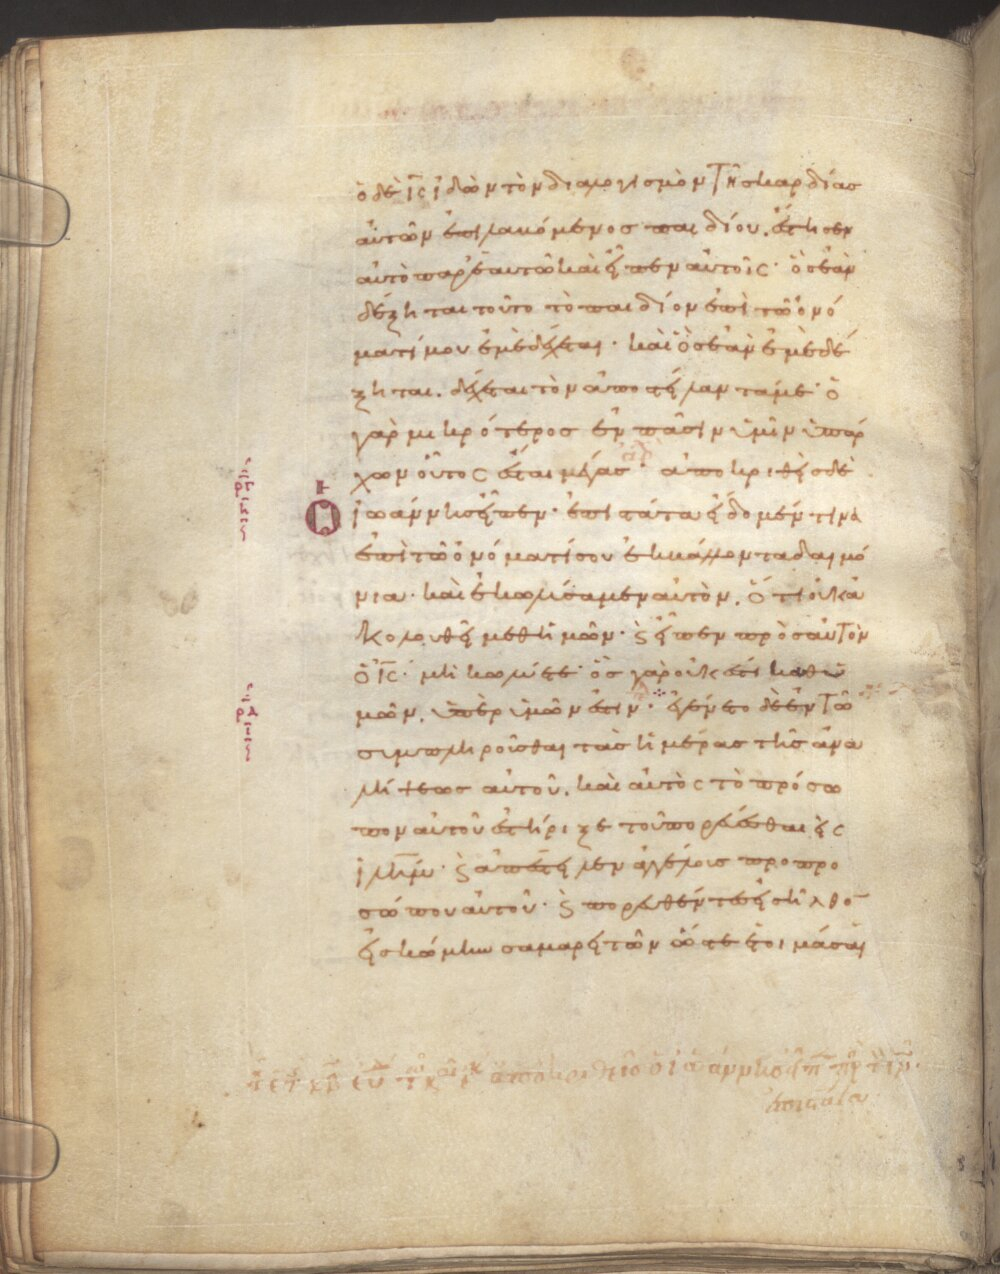 ὁ δὲ ις ἰδὼν τὸν διαλογισμὸν τῆς καρδίας
αὐτῶν ἐπιλαβόμενος παιδίου, ἔστησεν
αὐτὸ παρ' ἑαυτῶ καὶ εἶπεν αὐτοῖς· ὃς ἐὰν
δέξηται τοῦτο τὸ παιδίον ἐπὶ τῶ ὀνό
ματί μου ἐμὲ δέχεται· καὶ ὃς ἐὰν ἐμὲ δέ
ξηται, δέχεται τὸν ἀποστείλαντά με· ὁ
γὰρ μικρότερος ἐν πᾶσιν ὑμῖν ὑπάρ
χων οὗτος ἔσται μέγας· ἀποκριθεὶς δὲ
ἰωάννης εἶπεν· ἐπιστάτα εἴδομέν τινα
ἐπὶ τῶ ὀνόματί σου ἐκβάλλοντα δαιμό
νια· καὶ ἐκωλύσαμεν αὐτὸν, ὅτι οὐκ ἀ
κολουθεῖ μεθ' ἡμῶν· ϗ εἶπεν πρὸς αὐτὸν
ὁ ις· μὴ κωλύετε· ὃς γὰρ οὐκ ἔστι καθ' ὑ
μῶν, ὑπὲρ ὑμῶν ἐστιν· ἐγένετο δὲ ἐν τῶ
συμπληροῦσθαι τὰς ἡμέρας τῆς ἀνα
λήψεως αὐτοῦ, καὶ αὐτὸς τὸ πρόσω
πον αὐτοῦ ἐστήριξε τοῦ πορεύεσθαι εἰς
ιλημ· ϗ ἀπέστειλεν ἀγγέλους πρὸ προ
σώπου αὐτοῦ· ϗ πορευθέντες εἰσῆλθον
εἰς κώμην σαμαρειτῶν ὥστε ἑτοιμάσαι